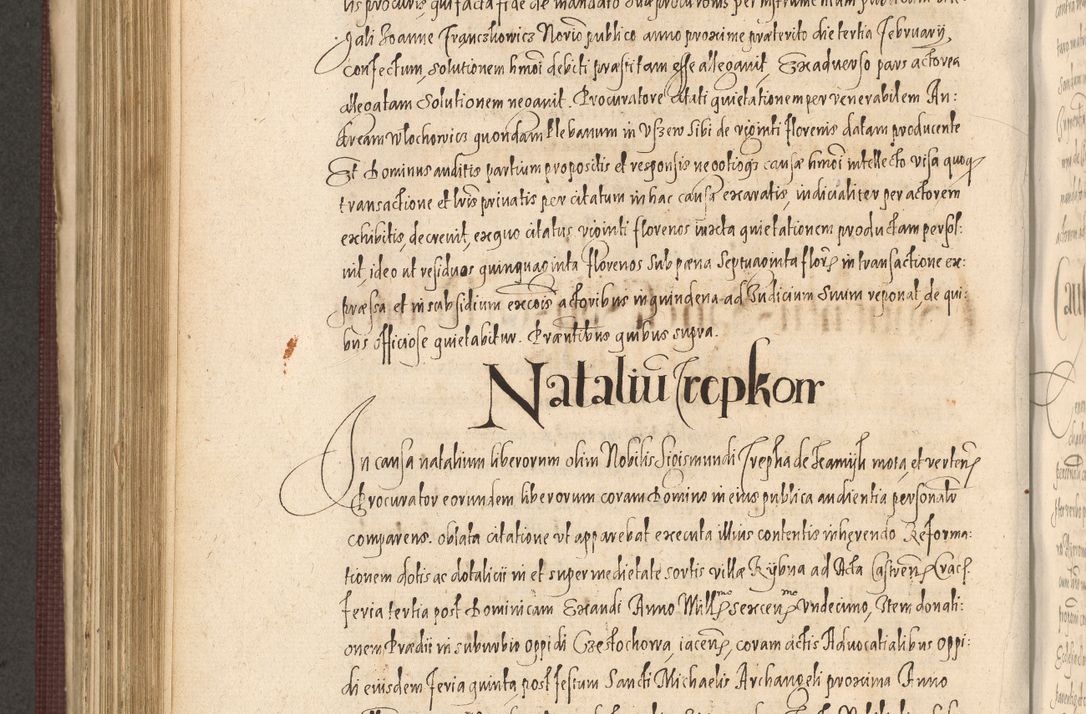 Jali Joanne Franczkowicz Norio publico anno proxime præterito die tertia February,
confectum, solutionem hmoi debiti præstitam esse allegavit, Ex adverso pars actorea
allegatam solutionem negavit. Procuratore citati quietationem per venerabilem An:
dream Wlochowicz quondam Plebanum in Uszew sibi de viginti florenis datam producente
Et Dominus auditis partium propositis et responsis negotiog causæ hmoi intellecto visa quoq
transactione et lris privatis per citatum in hac causa exaratis, indicialiter per actorem
exhibitis, decrevit, ex quo citatus viginti florenos iuxta quietationem productam persol:
vit, ideo ut residuos quinquaginta florenos sub pæna septuaginta flor in transactione ex:
præssa et in subsidium excois actoribus in quindena ad Judicium suum reponat, de qui:
bus officiose quietabitur. Præntibus quibus supra.
Nataliū Trepkow
In causa natalium liberorum olim Nobilis Sigismundi Trepka de mota, et verten
Procurator eorundem liberorum coram Domino in eius publica audientia personalr
comparens. oblata citatione ut apparebat executa illius contentis inhęrendo Reforma:
tionem dotis ac dotalicii in et super medietate sortis villæ Rybna ad Acta Castren Crac
feria tertia post Dominicam Exaudi Anno Mill͏mo sexcen͏mo Undecimo, Item donati:
onem Prædii in suburbio oppidi Częstochowa, iacen, coram actis Advocatialibus oppi:
di eiusdem feria quinta post festum Sancti Michaelis Archangeli proxima Anno